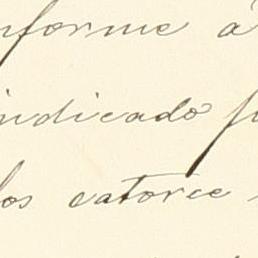 nforme á
indicado
los catorce